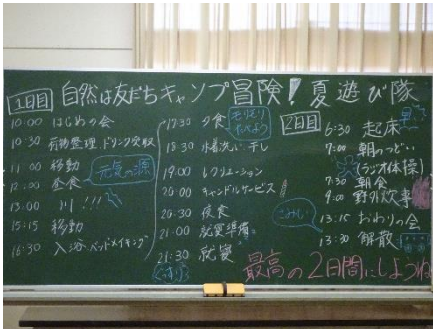 自然は友だちキャンプ冒険！夏遊び隊
1日目
10:00 はじめの会
10:30 荷物整理 ドリンク受取
11:00 移動
12:00 昼食
元気の源
13:00 川!!!
15:15 移動
16:30 入浴・ベッドメイキング
17:30 夕食
モリモリ
食べよう
18:30 水着洗い・干し
19:00 レクリエーション
20:00 キャンドルサービス
20:30 夜食
21:00 就寝準備
21:30 就寝
2日目
6:30 起床
7:00 朝のつどい
(ラジオ体操)
7:30 朝食
9:00 野外炊事
13:15 おわりの会
13:30 解散
最高の2日間にしようね